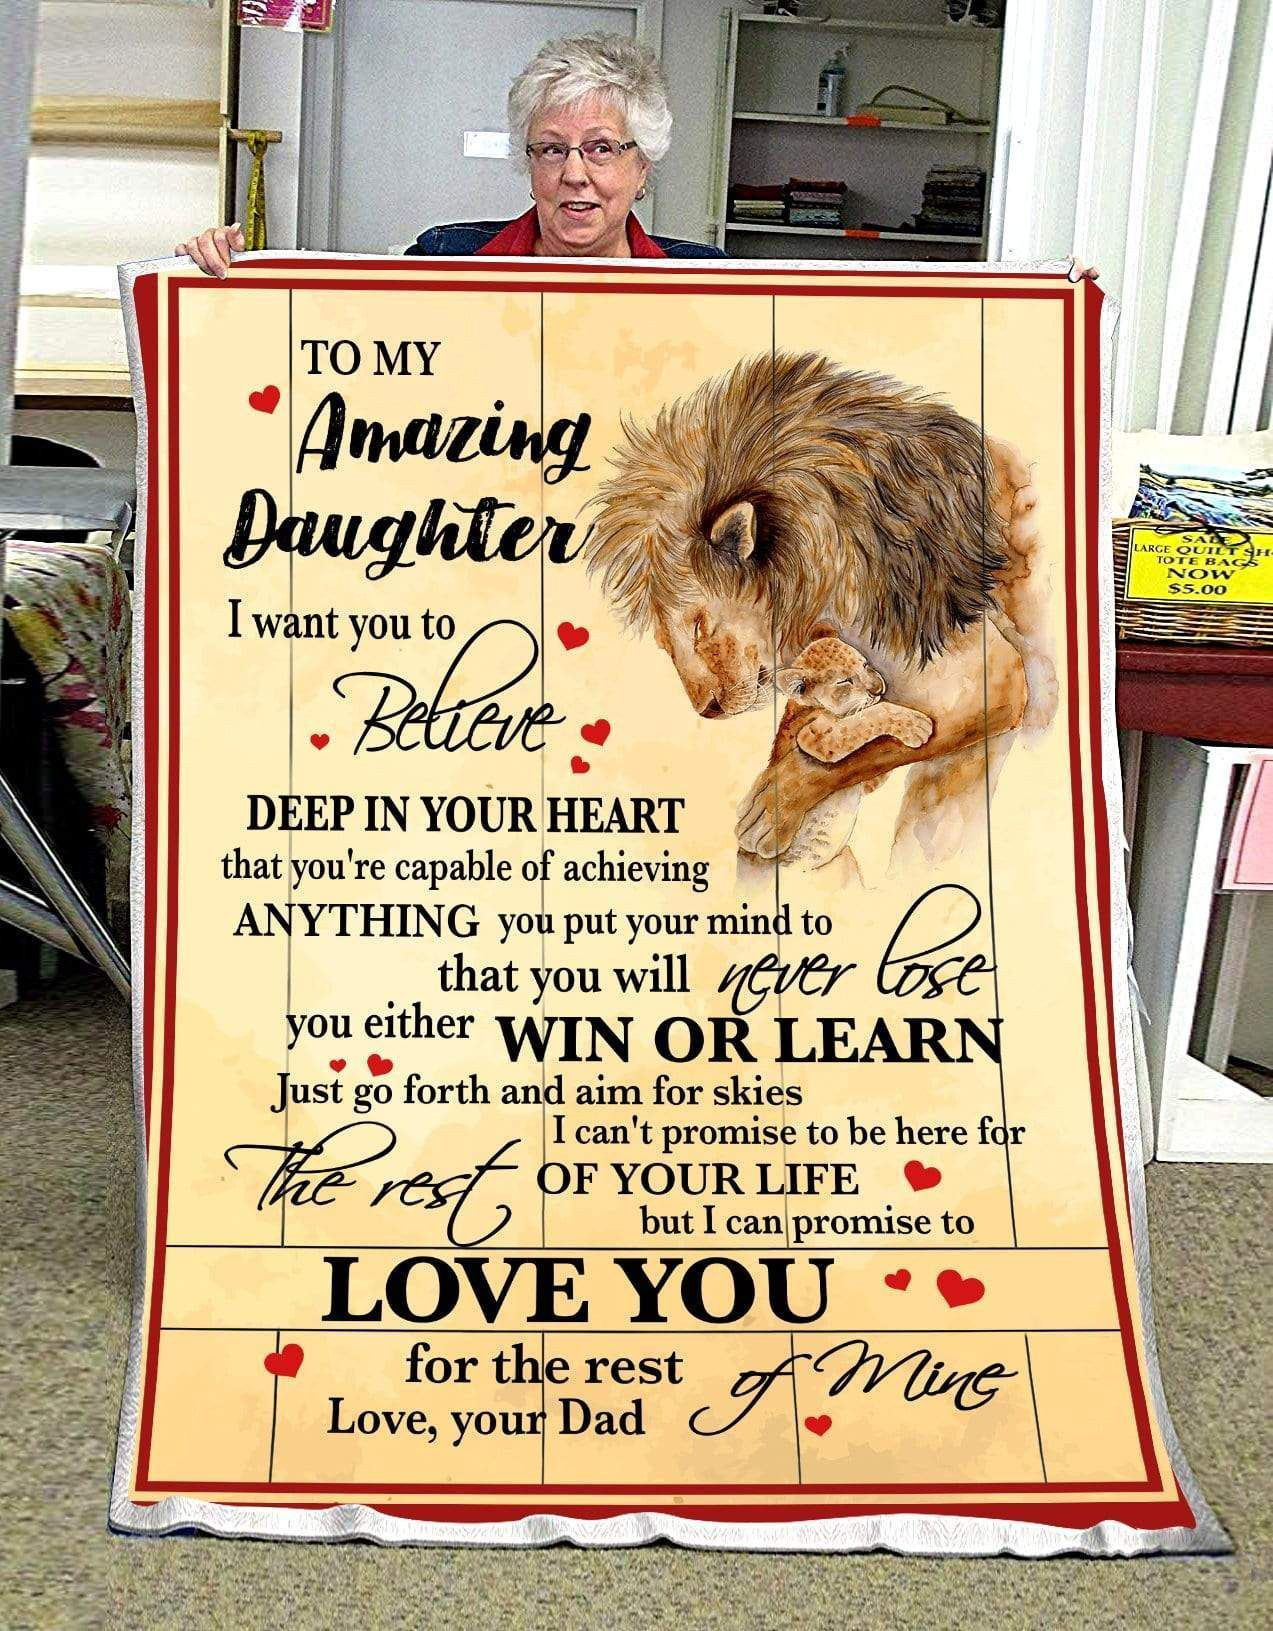 TO MY
Amazing
Daughter
I want you to
Believe
DEEP IN YOUR HEART
that you're capable of achieving
ANYTHING you put your mind to
that you will never lose
you either WIN OR LEARN
Just go forth and aim for skies
I can't promise to be here for
The rest OF YOUR LIFE
but I can promise to
LOVE YOU
for the rest of Mine
Love, your Dad
SALE
LARGE QUILT SH
TOTE BAGS
NOW
$5.00